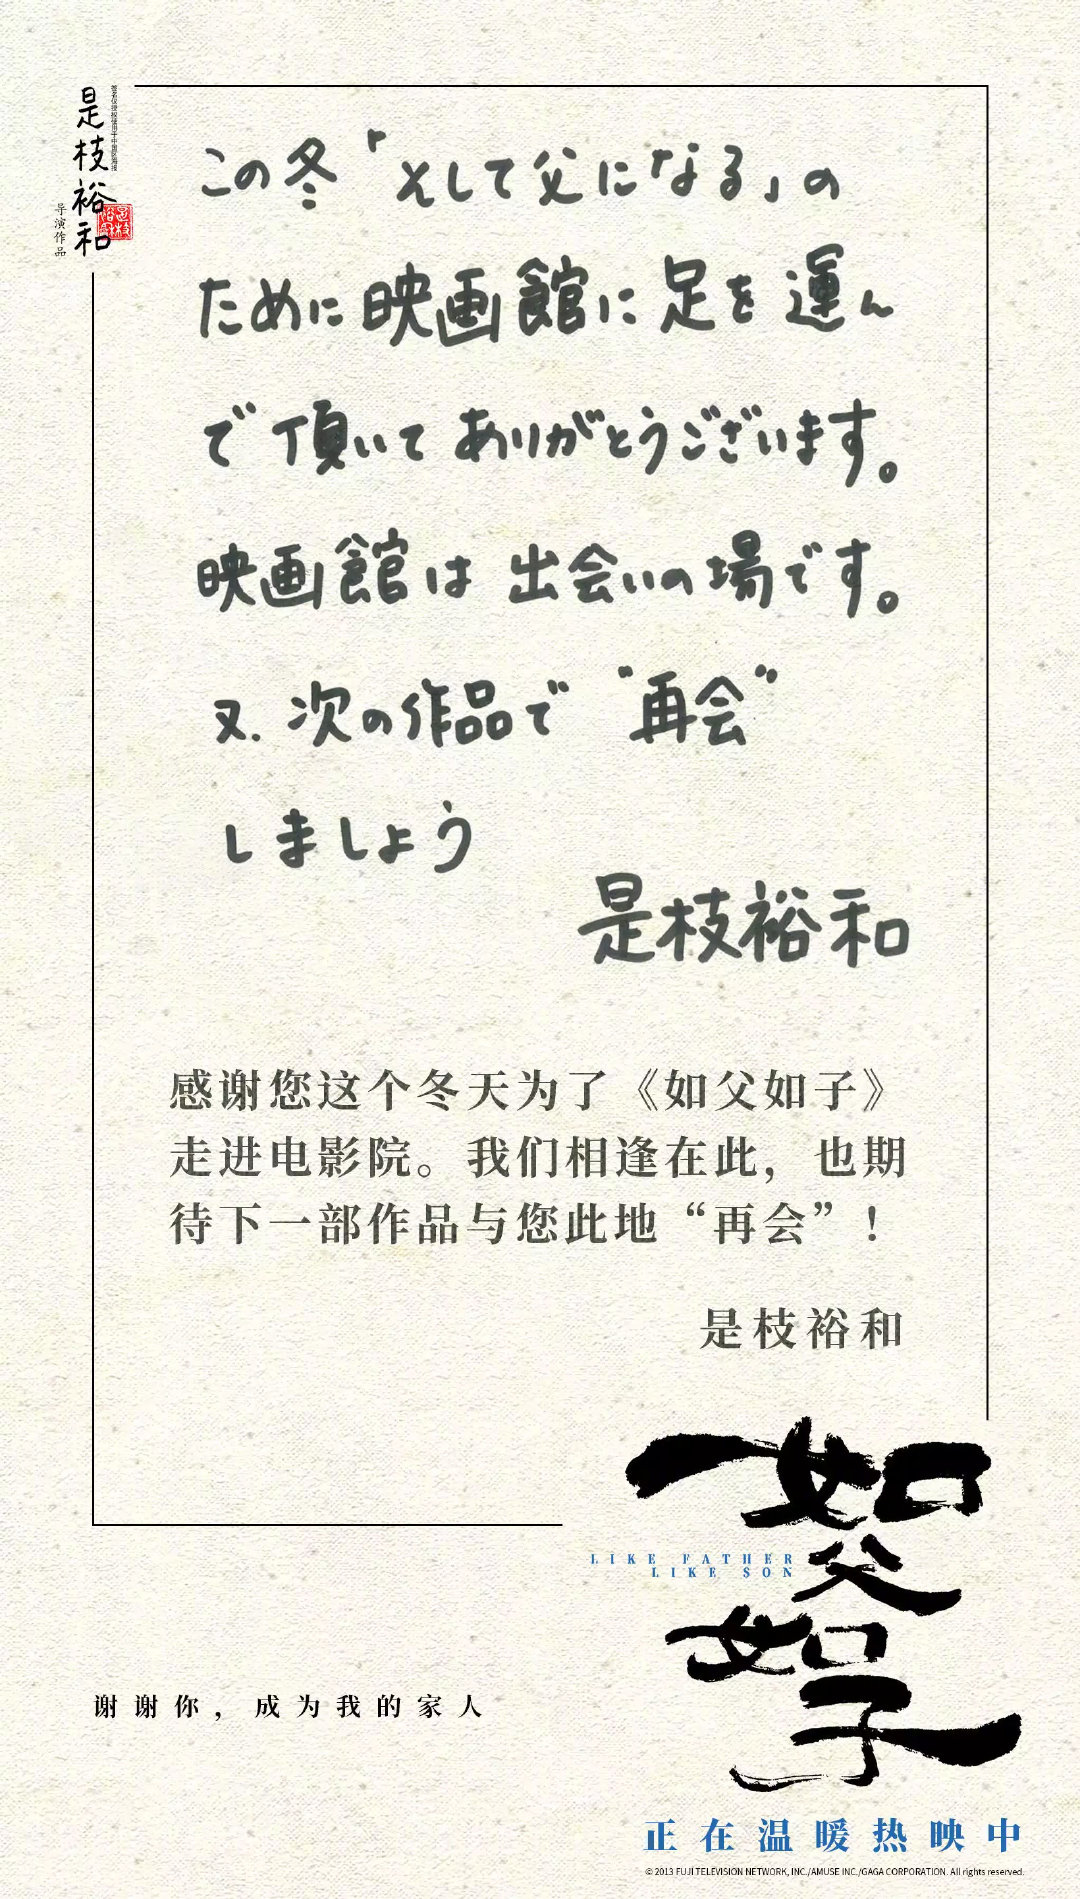 是枝裕和
导演作品
签名仅授权使用于中国区海报
この冬「そして父になる」の
ために映画館に足を運ん
で頂いてありがとうございます。
映画館は出会いの場です。
又.次の作品で“再会”
しましょう
是枝裕和
感谢您这个冬天为了《如父如子》
走进电影院。我们相逢在此，也期
待下一部作品与您此地“再会”！
是枝裕和
如父如子
LIKE FATHER
LIKE SON
谢谢你，成为我的家人
正在温暖热映中
© 2013 FUJI TELEVISION NETWORK, INC./AMUSE INC./GAGA CORPORATION. All rights reserved.